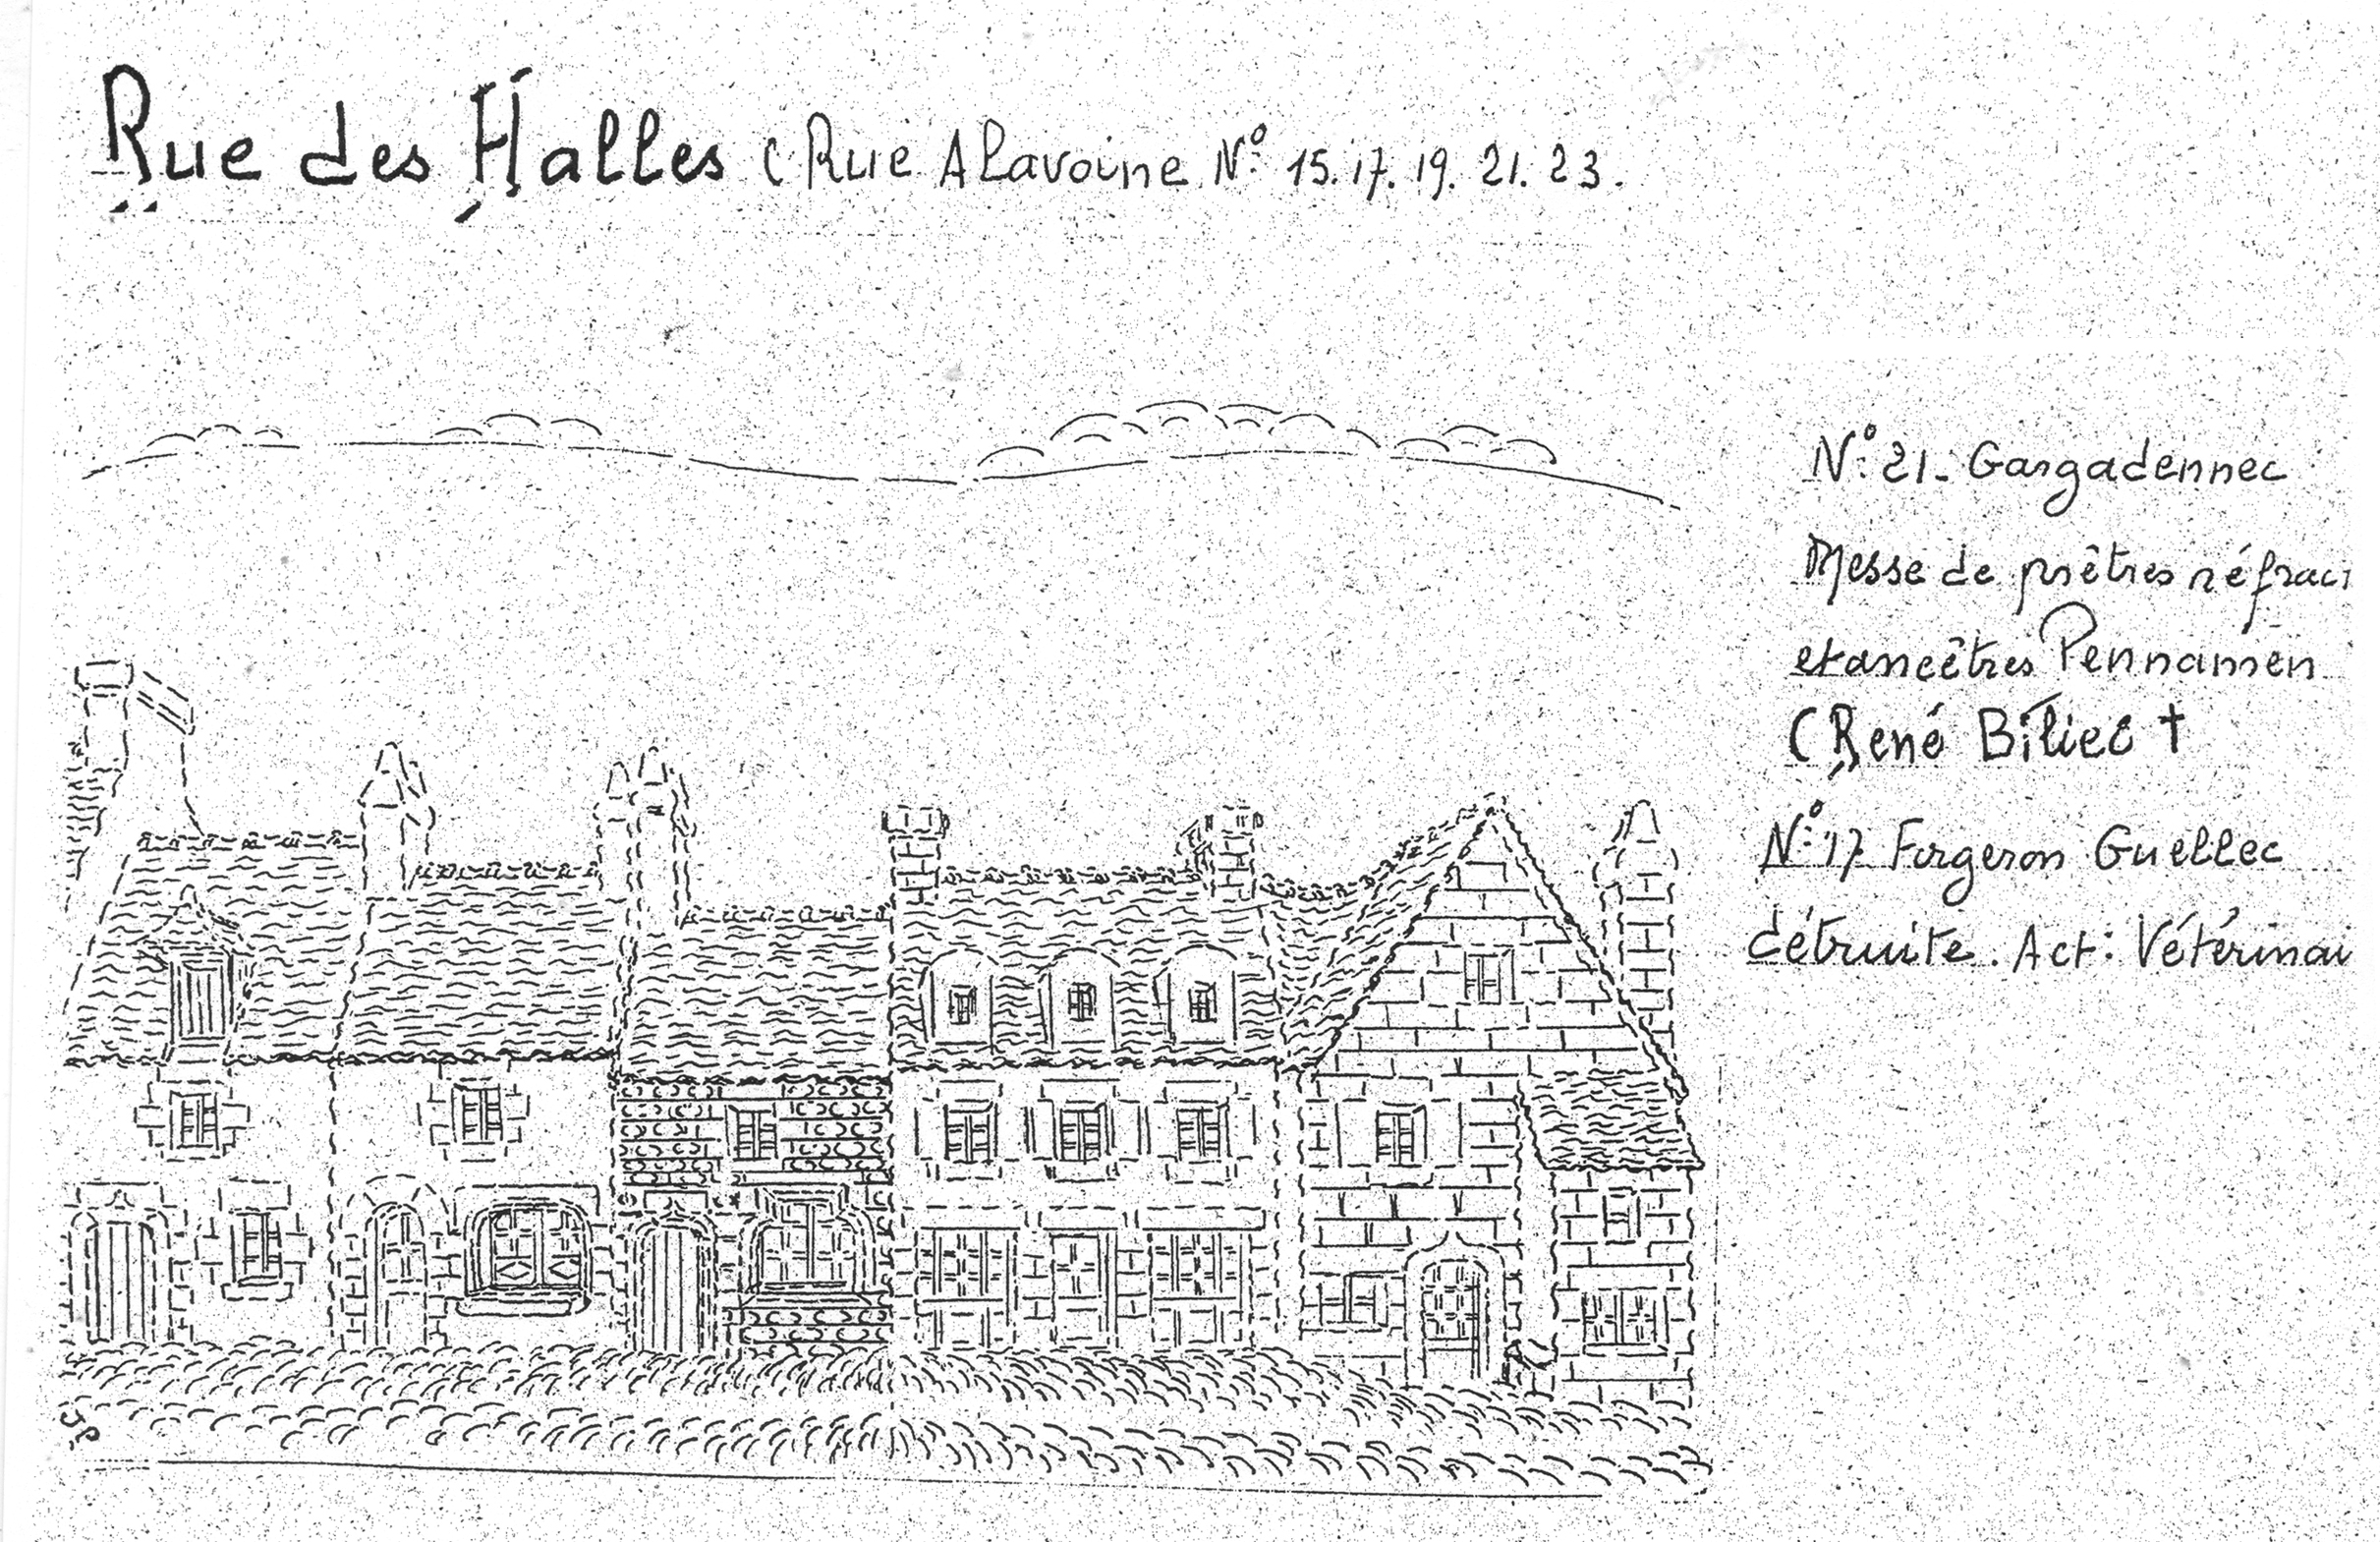 Rue des Halles (Rue ALavoine N° 15.17.19.21.23.
N° 21- Gargadennec
Messe de prêtres réfrac
et ancêtres Pennamen
(René Biliec †
N° 17 Forgeron Guellec
détruite. Act: Vétérinai